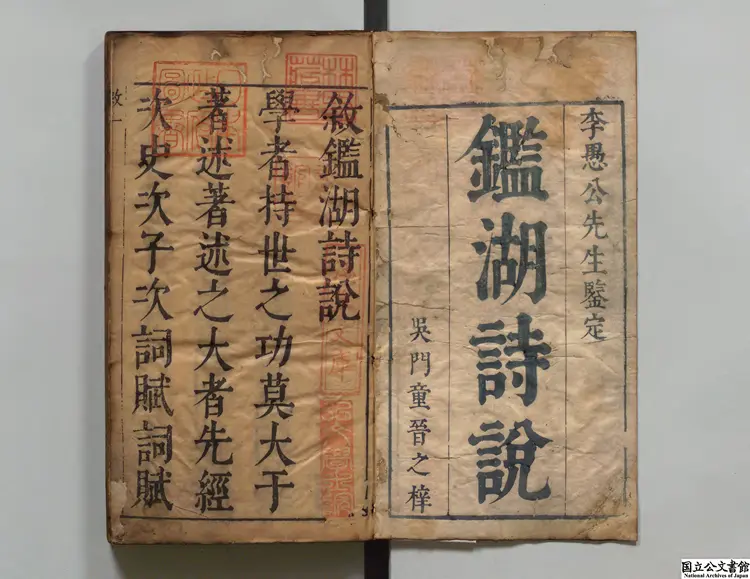 李愚公先生鑒定
鑑湖詩說
吳門童晉之梓
敘鑑湖詩說
學者持世之功莫大于
著述著述之大者先經
次史次子次詞賦詞賦
国立公文書館
National Archives of Japan